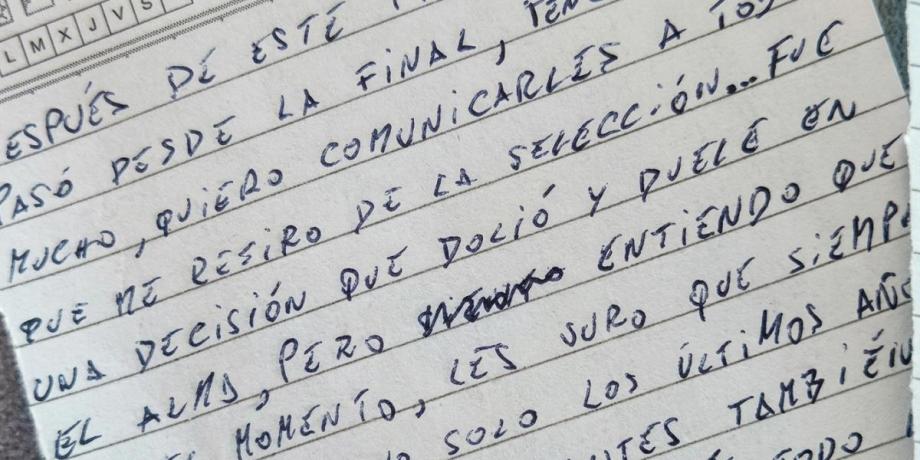 L M X J V S
ESPUÉS DE ESTE
PASÓ DESDE LA FINAL,
MUCHO, QUIERO COMUNICARLES A
QUE ME RETIRO DE LA SELECCIÓN... FUE
UNA DECISIÓN QUE DOLIÓ Y DUELE EN
EL ALMA, PERO ENTIENDO QUE
MOMENTO, LES JURO QUE SIEMP
SOLO LOS ÚLTIMOS AÑOS
TAMBIÉN